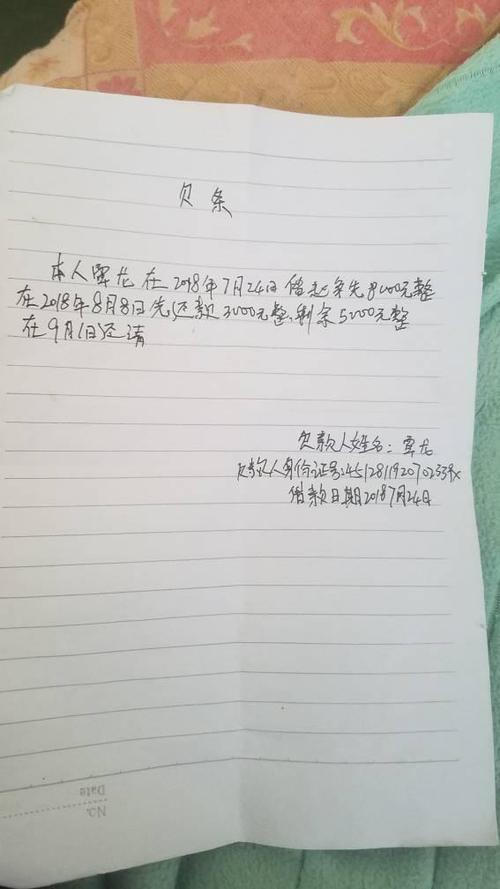 欠条
本人覃龙在2018年7月24日借赵先8000元整
在2018年8月8日先还款3000元整.剩余5000元整
在9月1日还请
欠款人姓名:覃龙
欠款人身份证号:
借款日期20187月24日
Date
No.